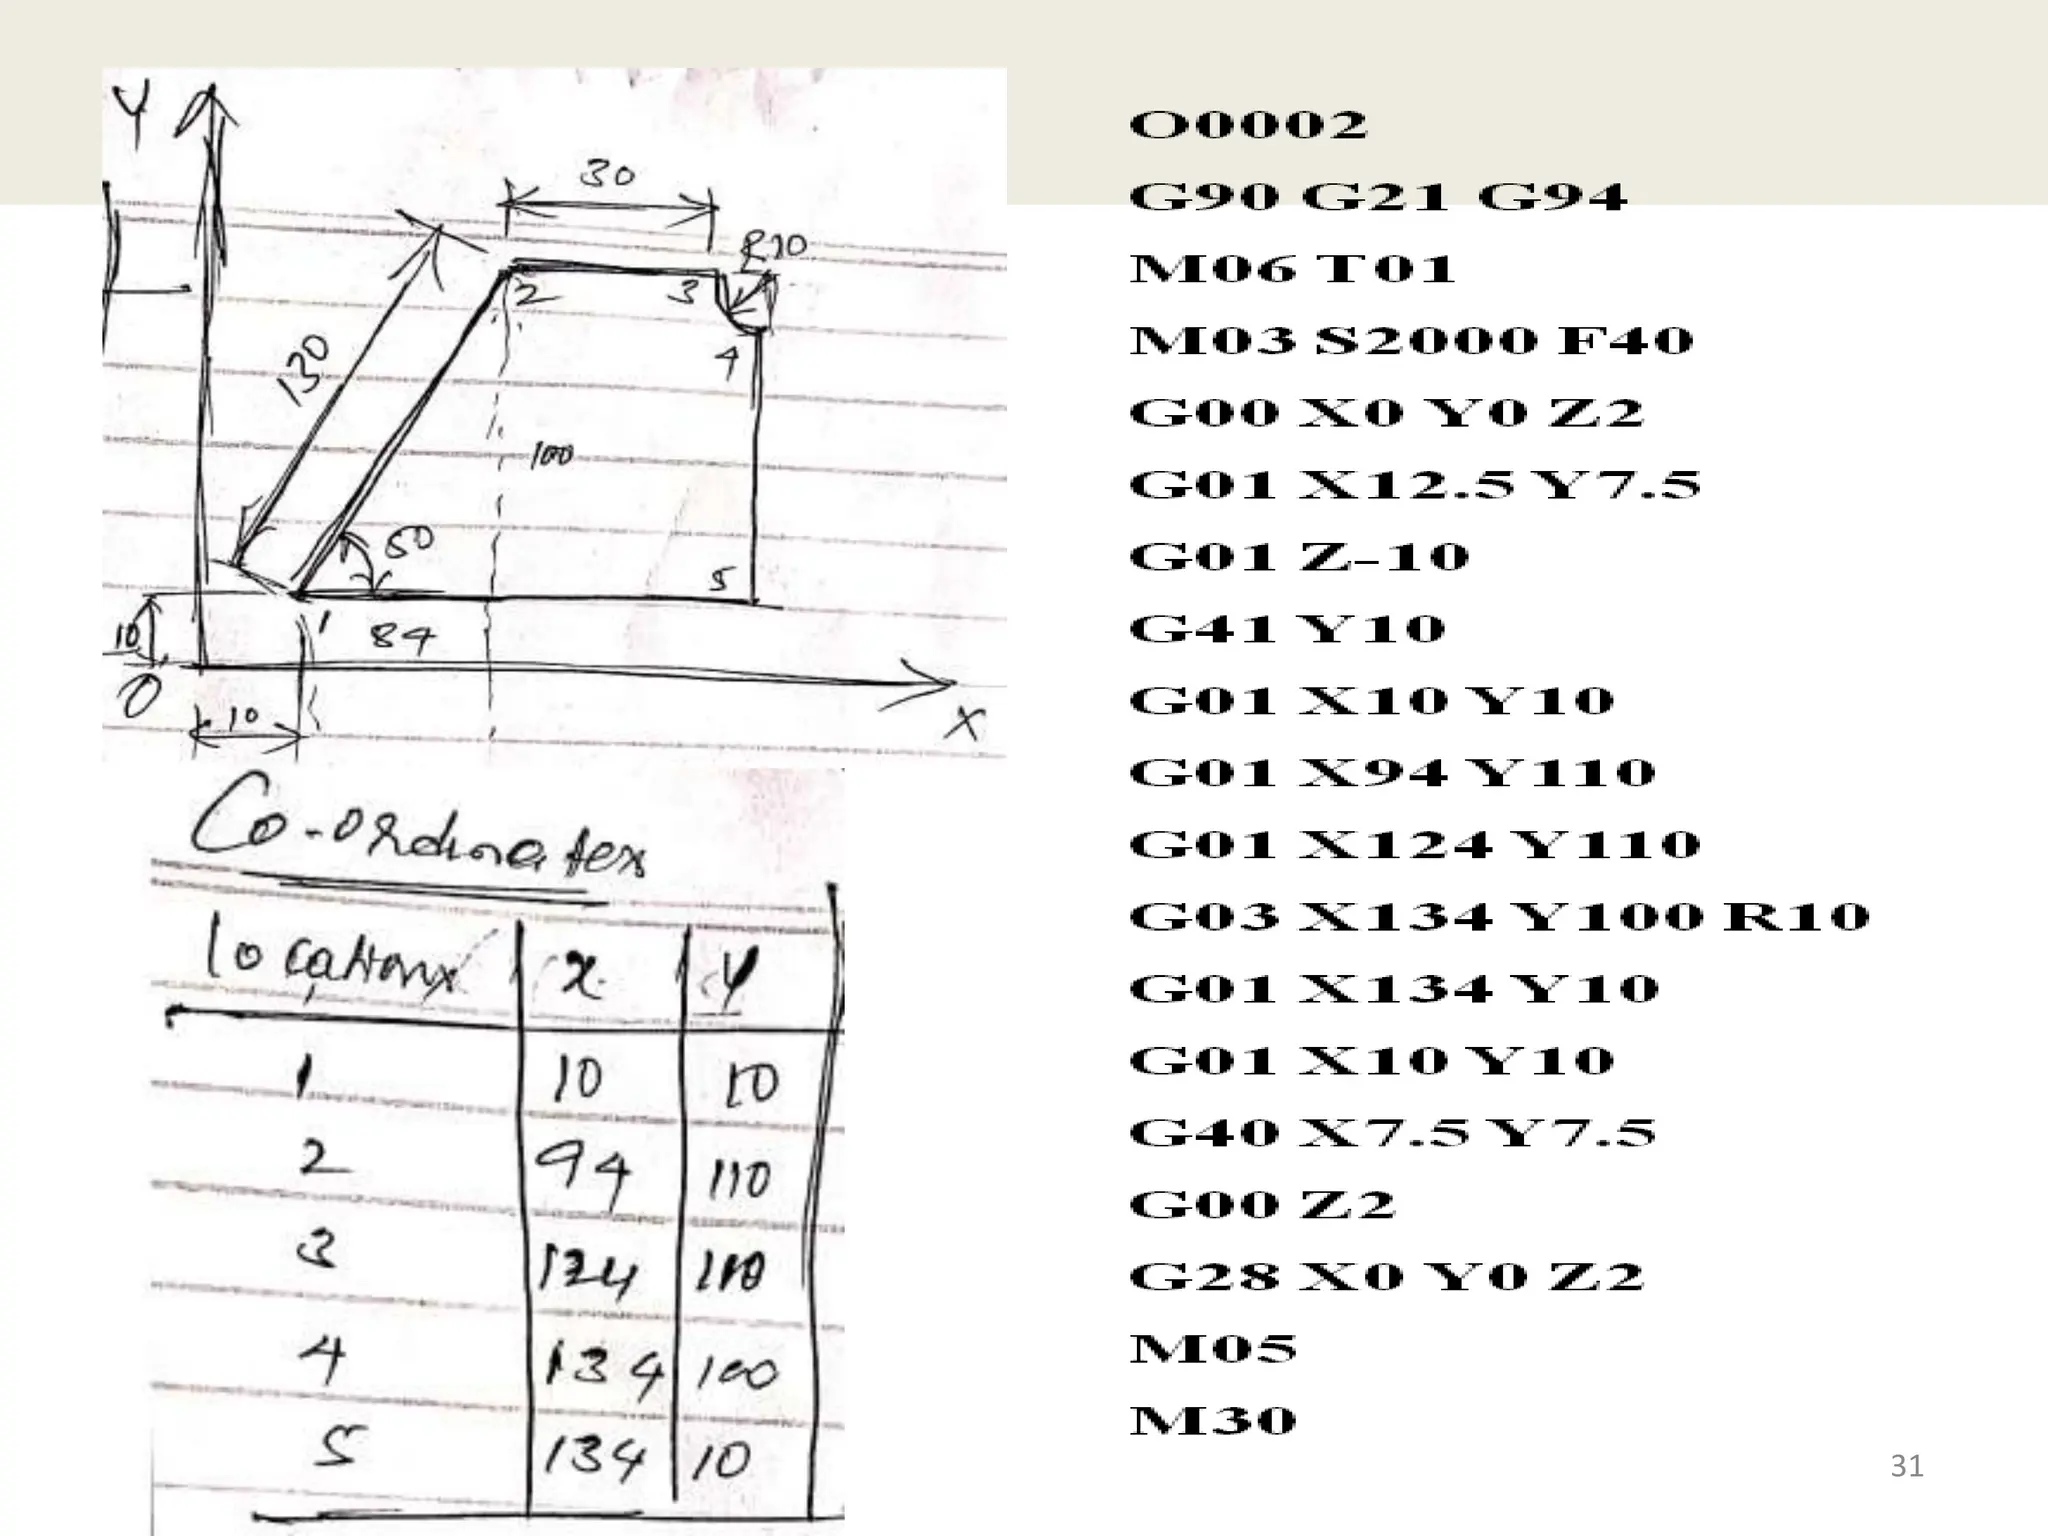 Y
30
R10
2
3
130
4
100
50
5
10
1
84
O
10
X
Co-ordinates
locations x y
1 10 10
2 94 110
3 124 110
4 134 100
5 134 10
O0002
G90 G21 G94
M06 T01
M03 S2000 F40
G00 X0 Y0 Z2
G01 X12.5 Y7.5
G01 Z-10
G41 Y10
G01 X10 Y10
G01 X94 Y110
G01 X124 Y110
G03 X134 Y100 R10
G01 X134 Y10
G01 X10 Y10
G40 X7.5 Y7.5
G00 Z2
G28 X0 Y0 Z2
M05
M30
31